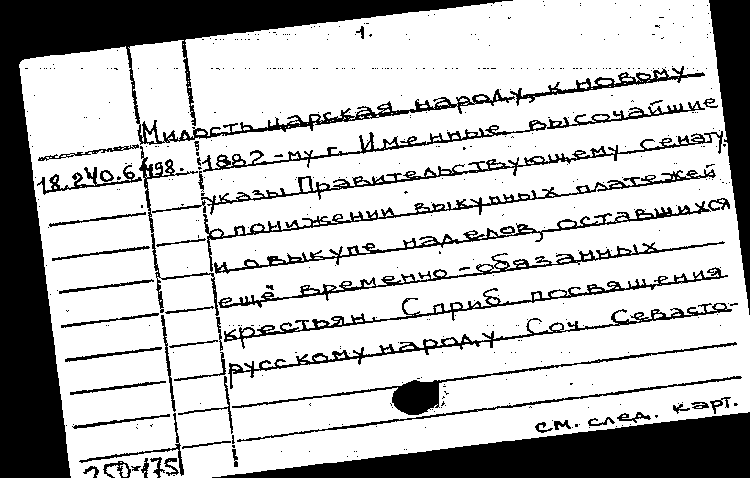 1.
Милость царская народу, к новому
18.240.6.498. 1882-му г. Именные высочайшие
указы Правительствующему Сенату,
о понижении выкупных платежей
и о выкупе наделов, оставшихся
ещё временно-обязанных
крестьян. С приб. посвящения
русскому народу. Соч. Севасто-
см. след. карт.
250-175